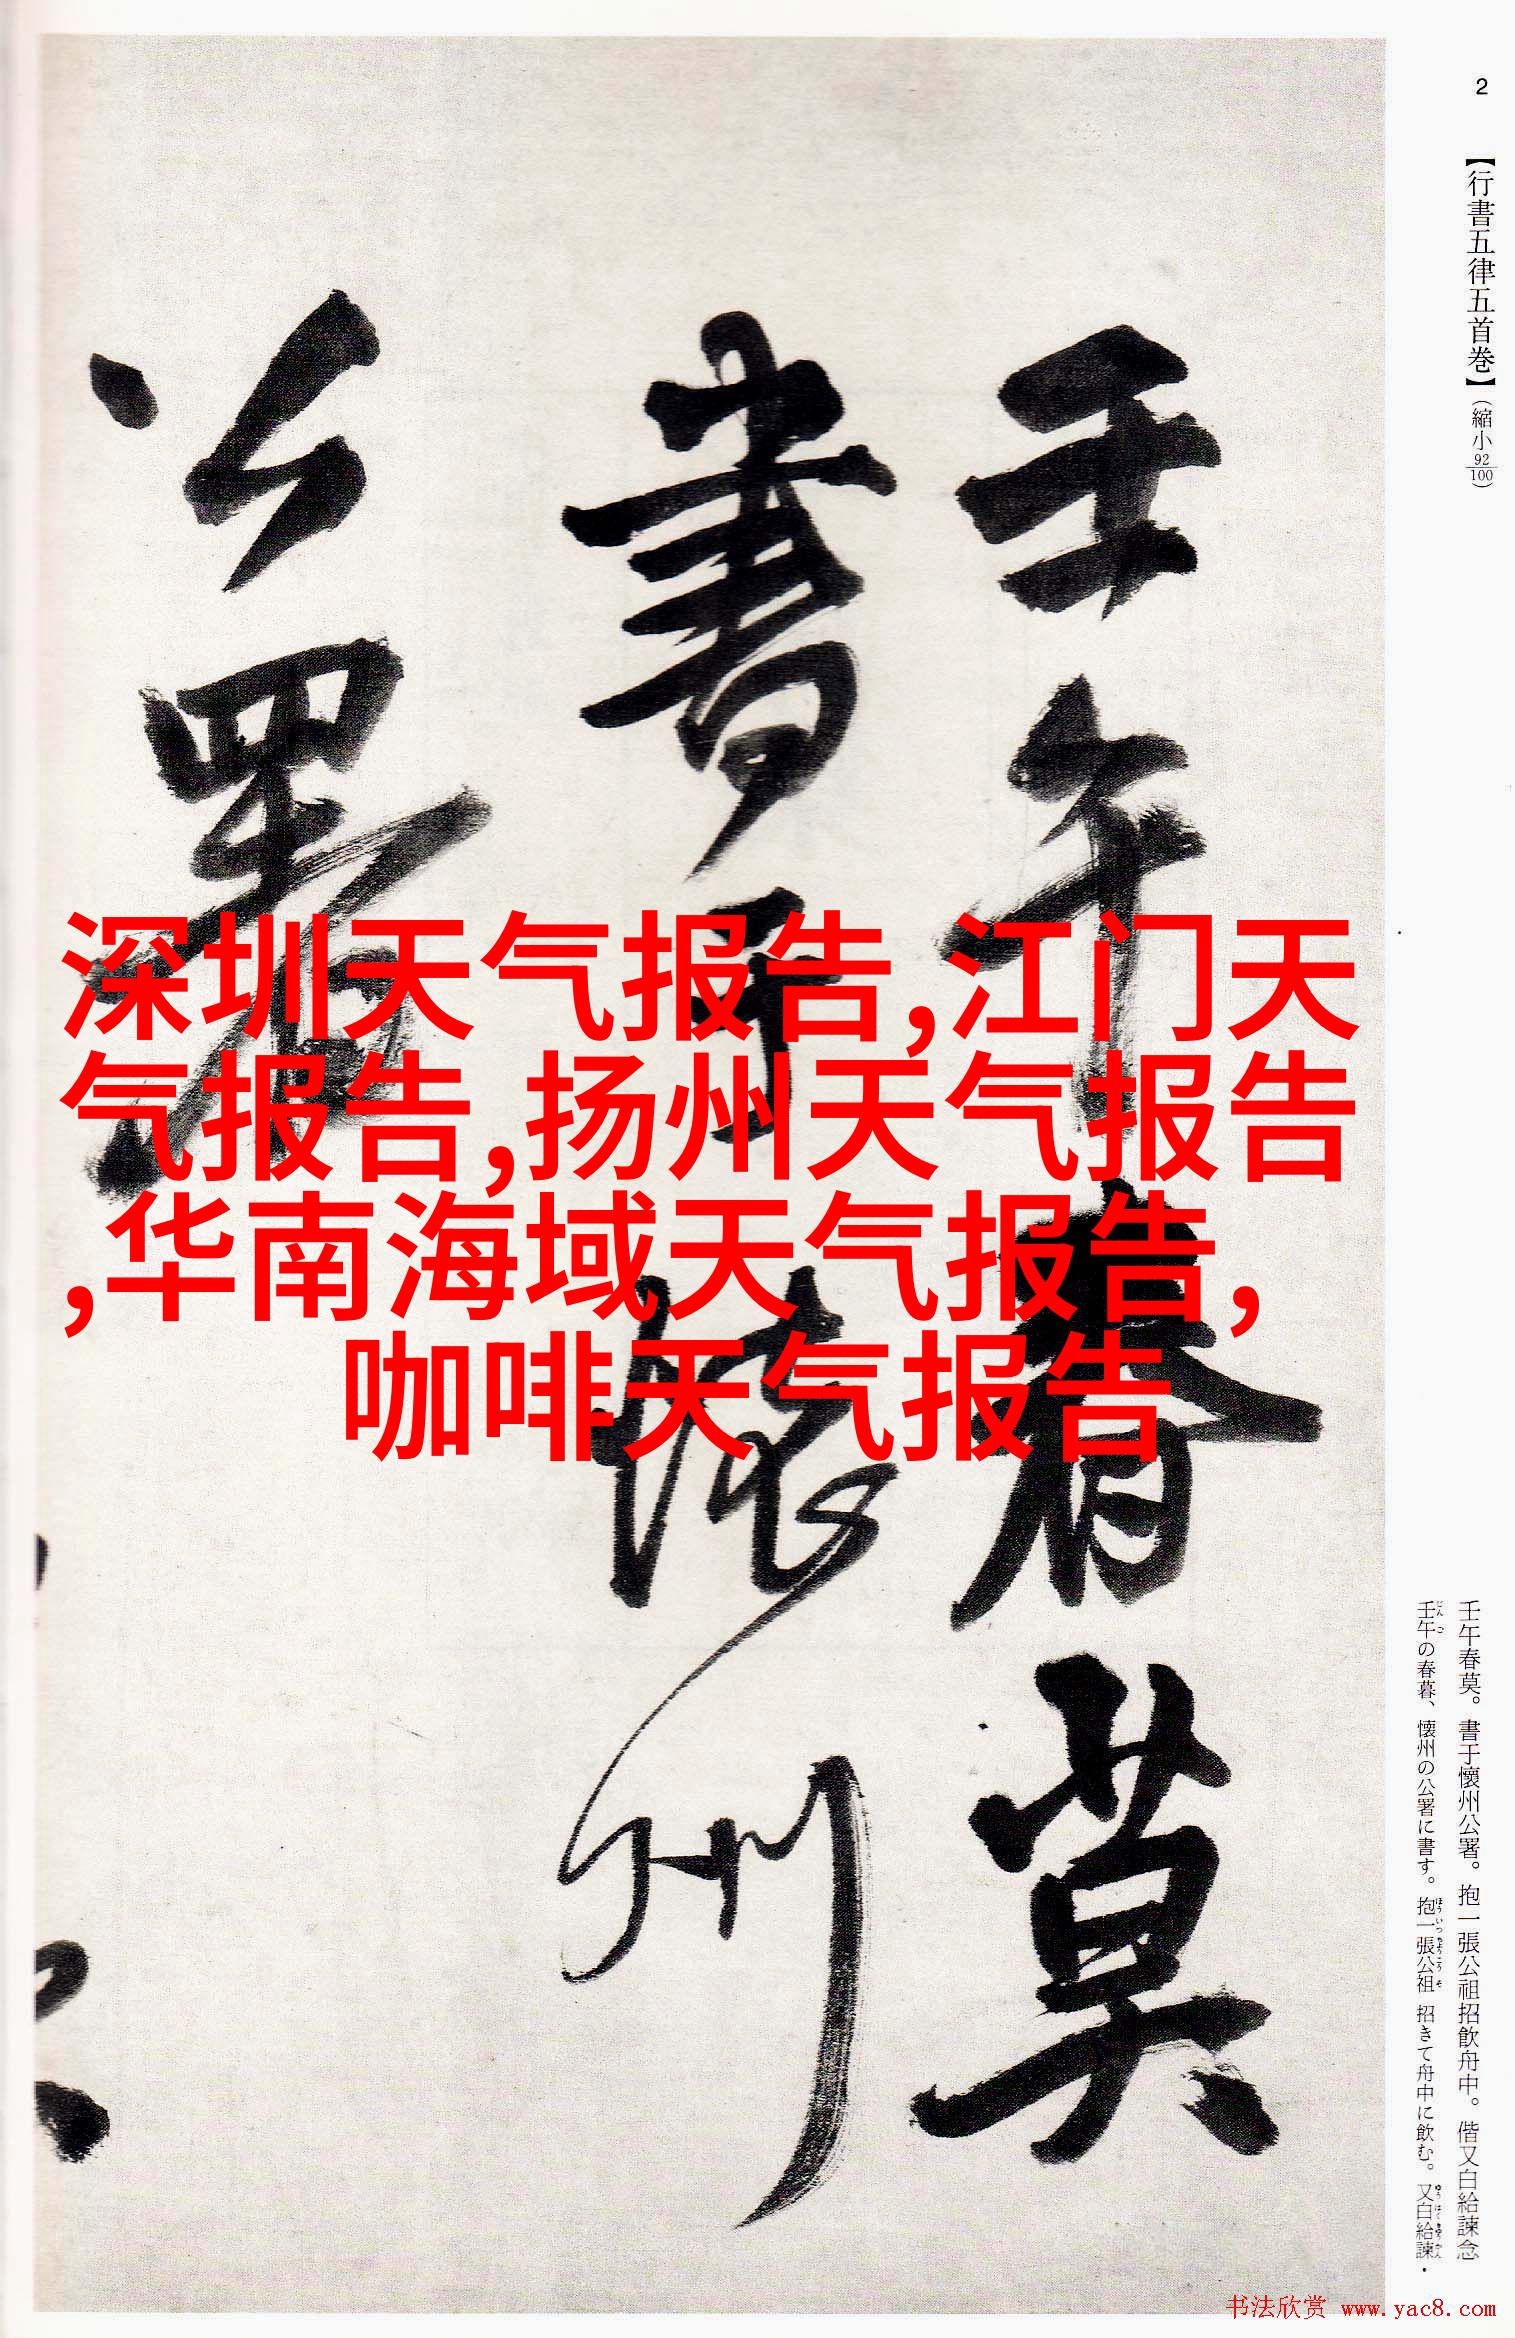 2
【行書五律五首巻】（縮小92/100）
壬午春莫
書于懐州
公署
深圳天气报告,江门天
气报告,扬州天气报告
,华南海域天气报告,
咖啡天气报告
壬午春莫。書于懷州公署。抱一張公祖招飲舟中。偕又白給諫念
壬午の春暮、懐州の公署に書す。抱一張公祖 招きて舟中に飲む。又白給諫・
书法欣赏 www.yac8.com